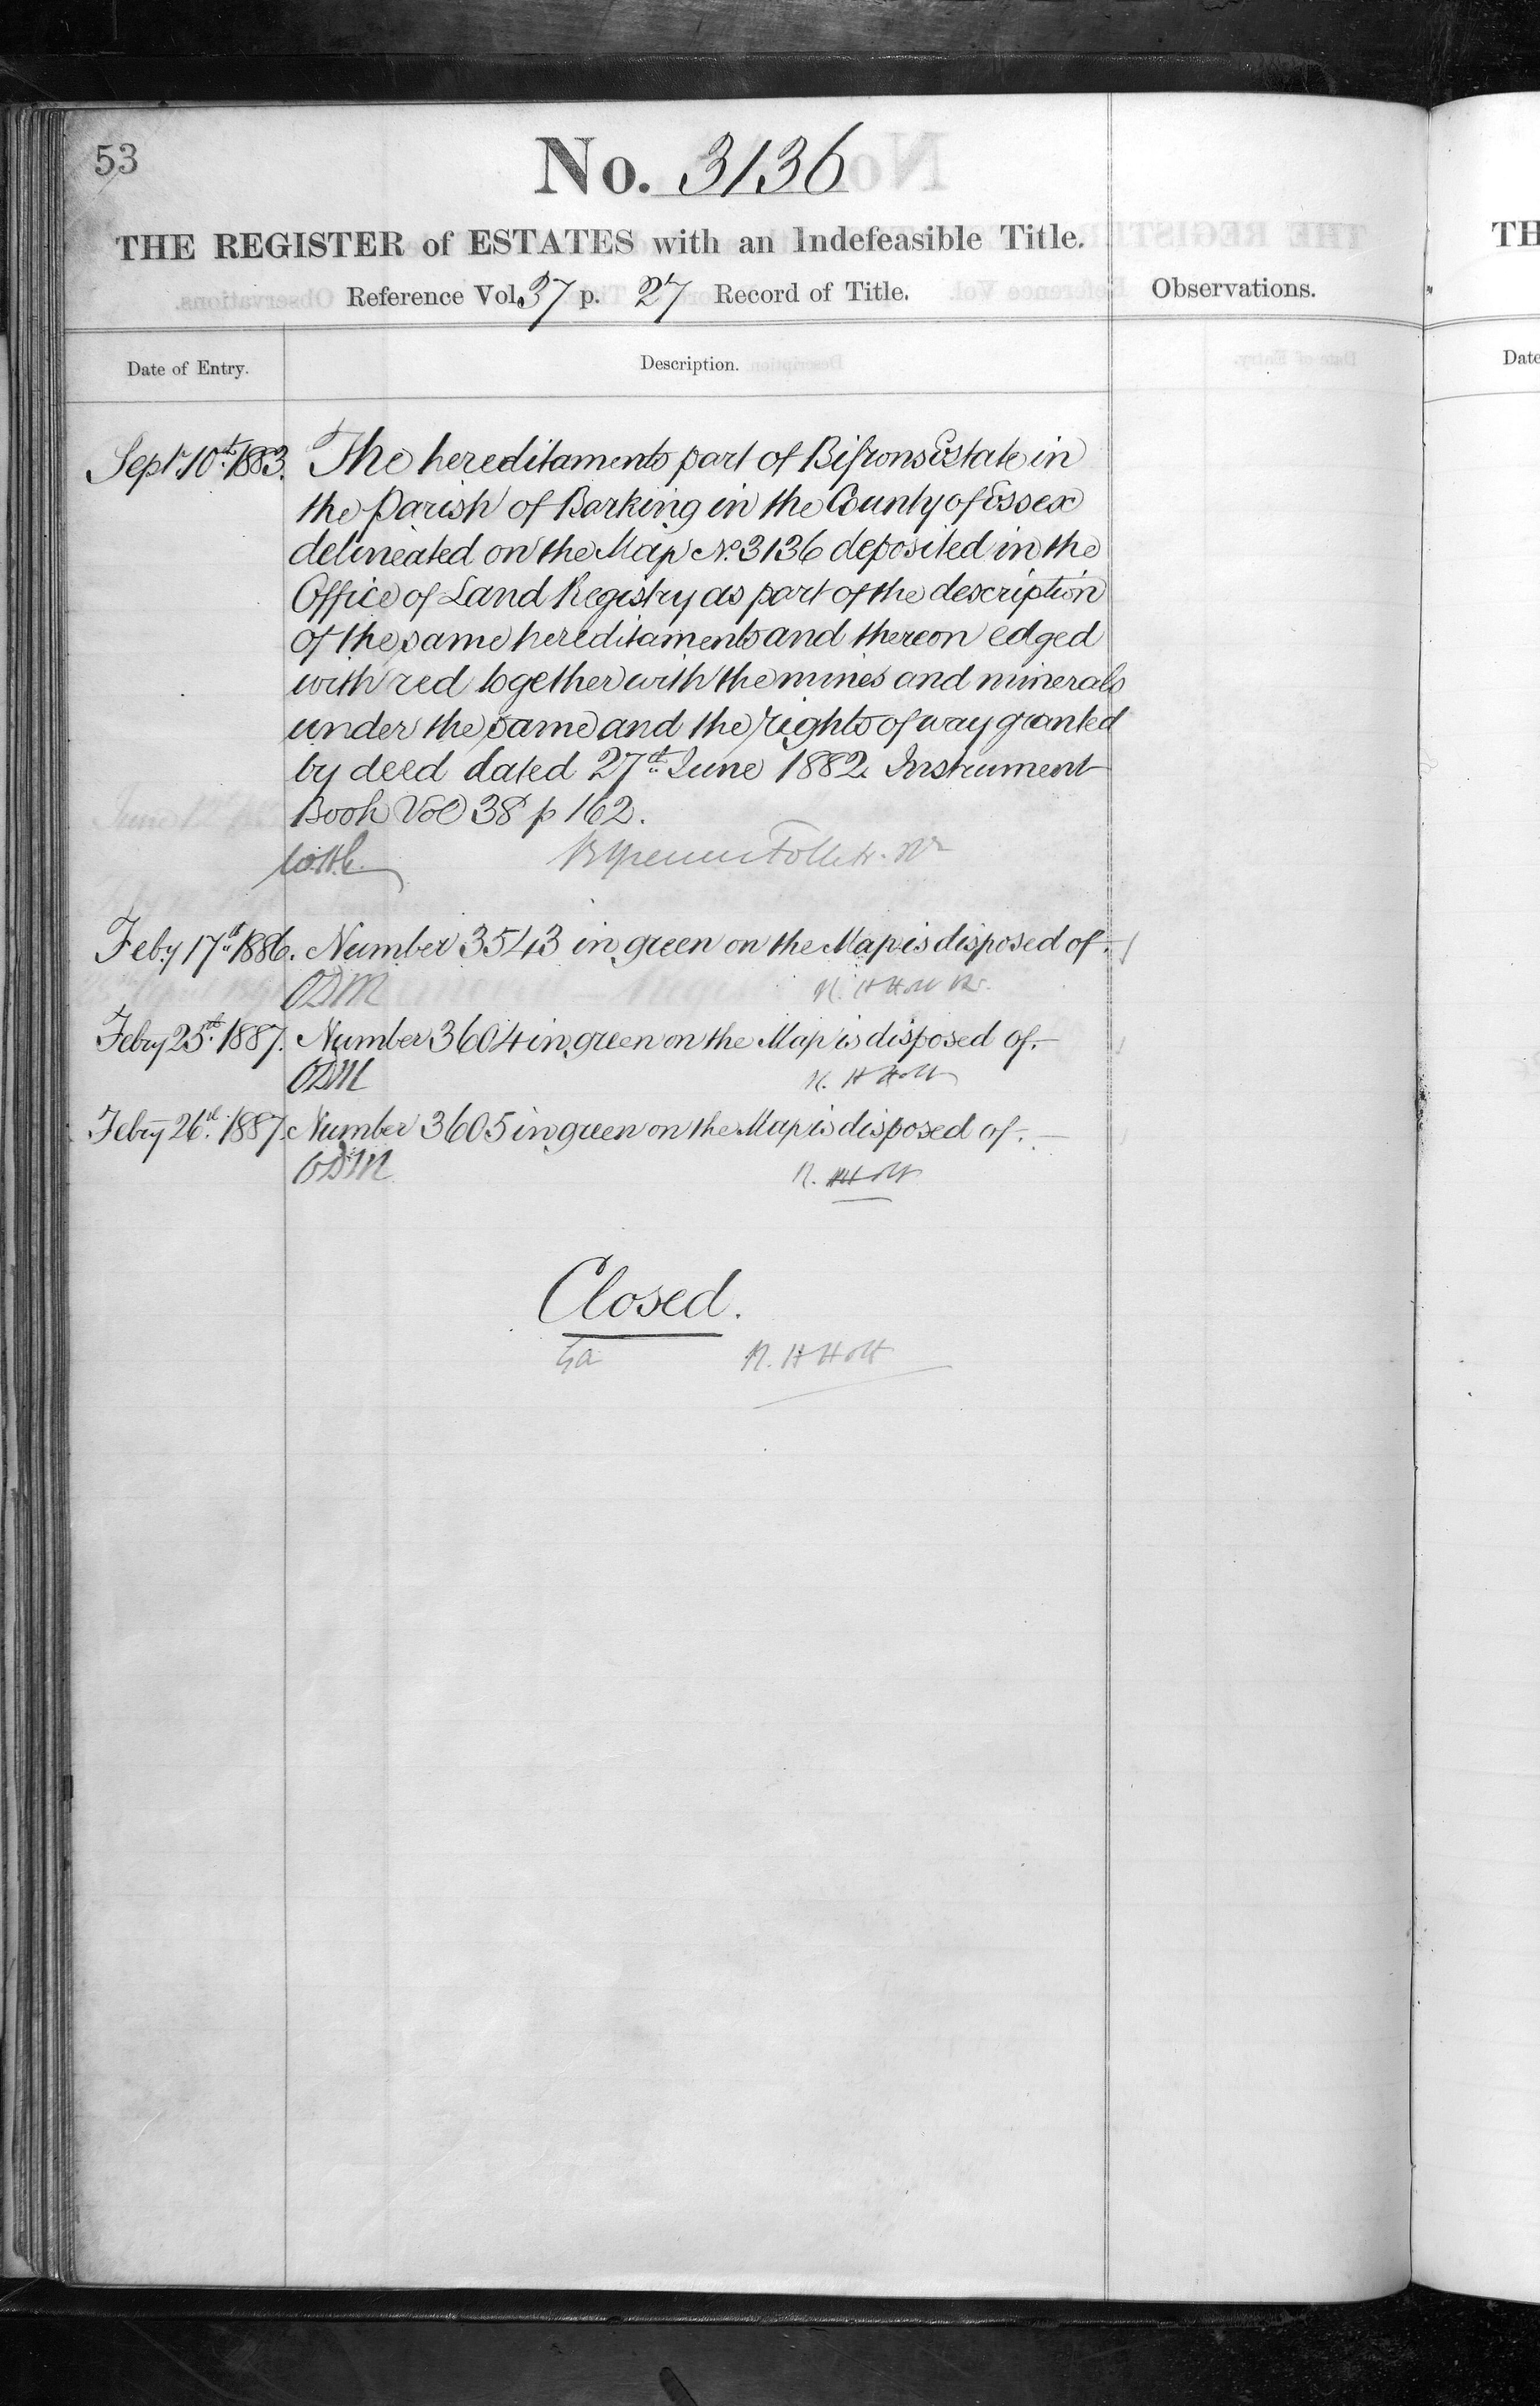 53
No. 3136
THE REGISTER of ESTATES with an Indefeasible Title.
Reference Vol. 37 p. 27 Record of Title.
Observations.
Date of Entry.
Description.
Sept 10th 1883. The hereditaments part of Bifrons Estate in
the Parish of Barking in the County of Essex
delineated on the Map No. 3136 deposited in the
Office of Land Registry as part of the description
of the same hereditaments and thereon edged
with red together with the mines and minerals
under the same and the rights of way granted
by deed dated 27th June 1882 Instrument
Book Vol 38 p 162.
Feby 17th 1886. Number 3543 in green on the Map is disposed of.
ODM R. H Holt
Febry 25th 1887. Number 3604 in green on the Map is disposed of.
ODM R. H Holt
Febry 26th 1887. Number 3605 in green on the Map is disposed of.
ODM R. H Holt
Closed.
R. H Holt
TH
Date